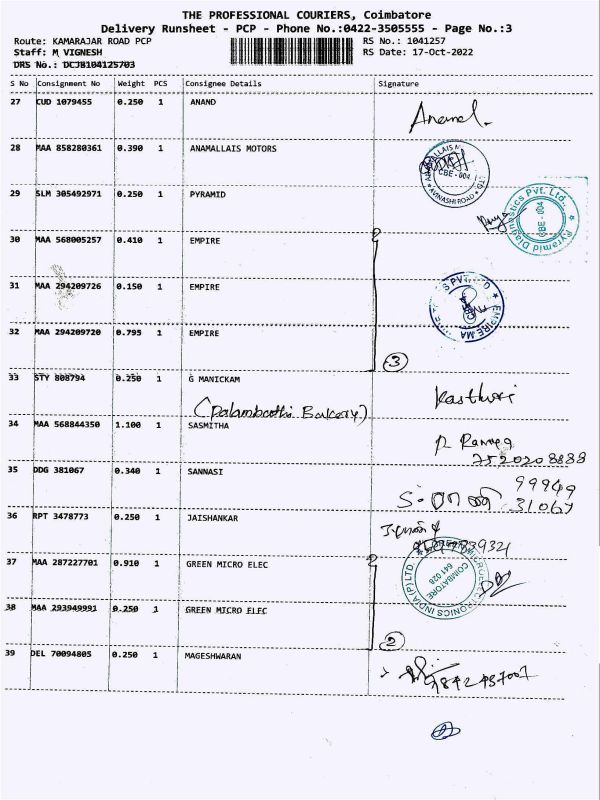 THE PROFESSIONAL COURIERS, Coimbatore
Delivery Runsheet - PCP - Phone No.:0422-3505555 - Page No.:3
Route: KAMARAJAR ROAD PCP RS No.: 1041257
Staff: M VIGNESH RS Date: 17-Oct-2022
DRS No.: DCJB104125703
S No Consignment No Weight PCS Consignee Details Signature
27 CUD 1079455 0.250 1 ANAND Anand.
28 MAA 858280361 0.390 1 ANAMALLAIS MOTORS
CBE - 004
AVINASHI ROAD
29 SLM 305492971 0.250 1 PYRAMID
Pyramid Diagnostics Pvt. Ltd.,
CBE - 004
30 MAA 568005257 0.410 1 EMPIRE
31 MAA 294209726 0.150 1 EMPIRE
32 MAA 294209720 0.795 1 EMPIRE
3
33 STY 808794 0.250 1 G MANICKAM Kasthuri
(Palamoothi Bakery)
34 MAA 568844350 1.100 1 SASMITHA P. Ramya
7520208888
35 DDG 381067 0.340 1 SANNASI
99949
31067
36 RPT 3478773 0.250 1 JAISHANKAR
37 MAA 287227701 0.910 1 GREEN MICRO ELEC
COIMBATORE
641 028
38 MAA 293949991 0.250 1 GREEN MICRO ELEC
2
39 DEL 70094805 0.250 1 MAGESHWARAN
9842437007